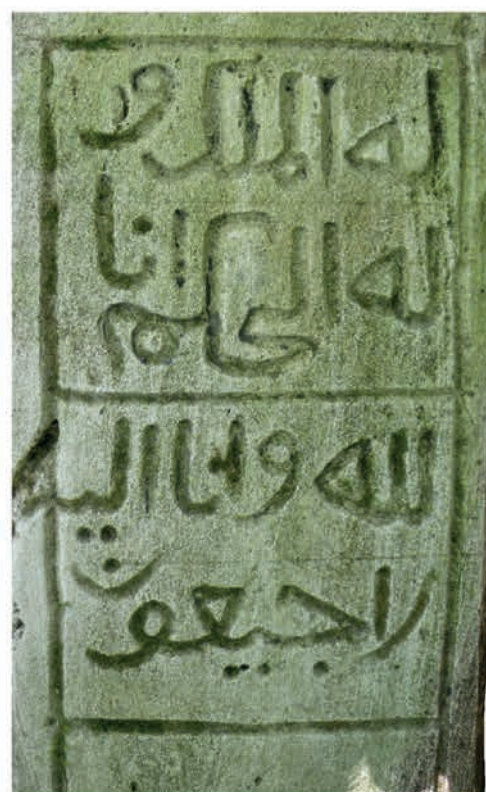 له الملك و
له الحكم انا
لله وانا اليه
راجيعون